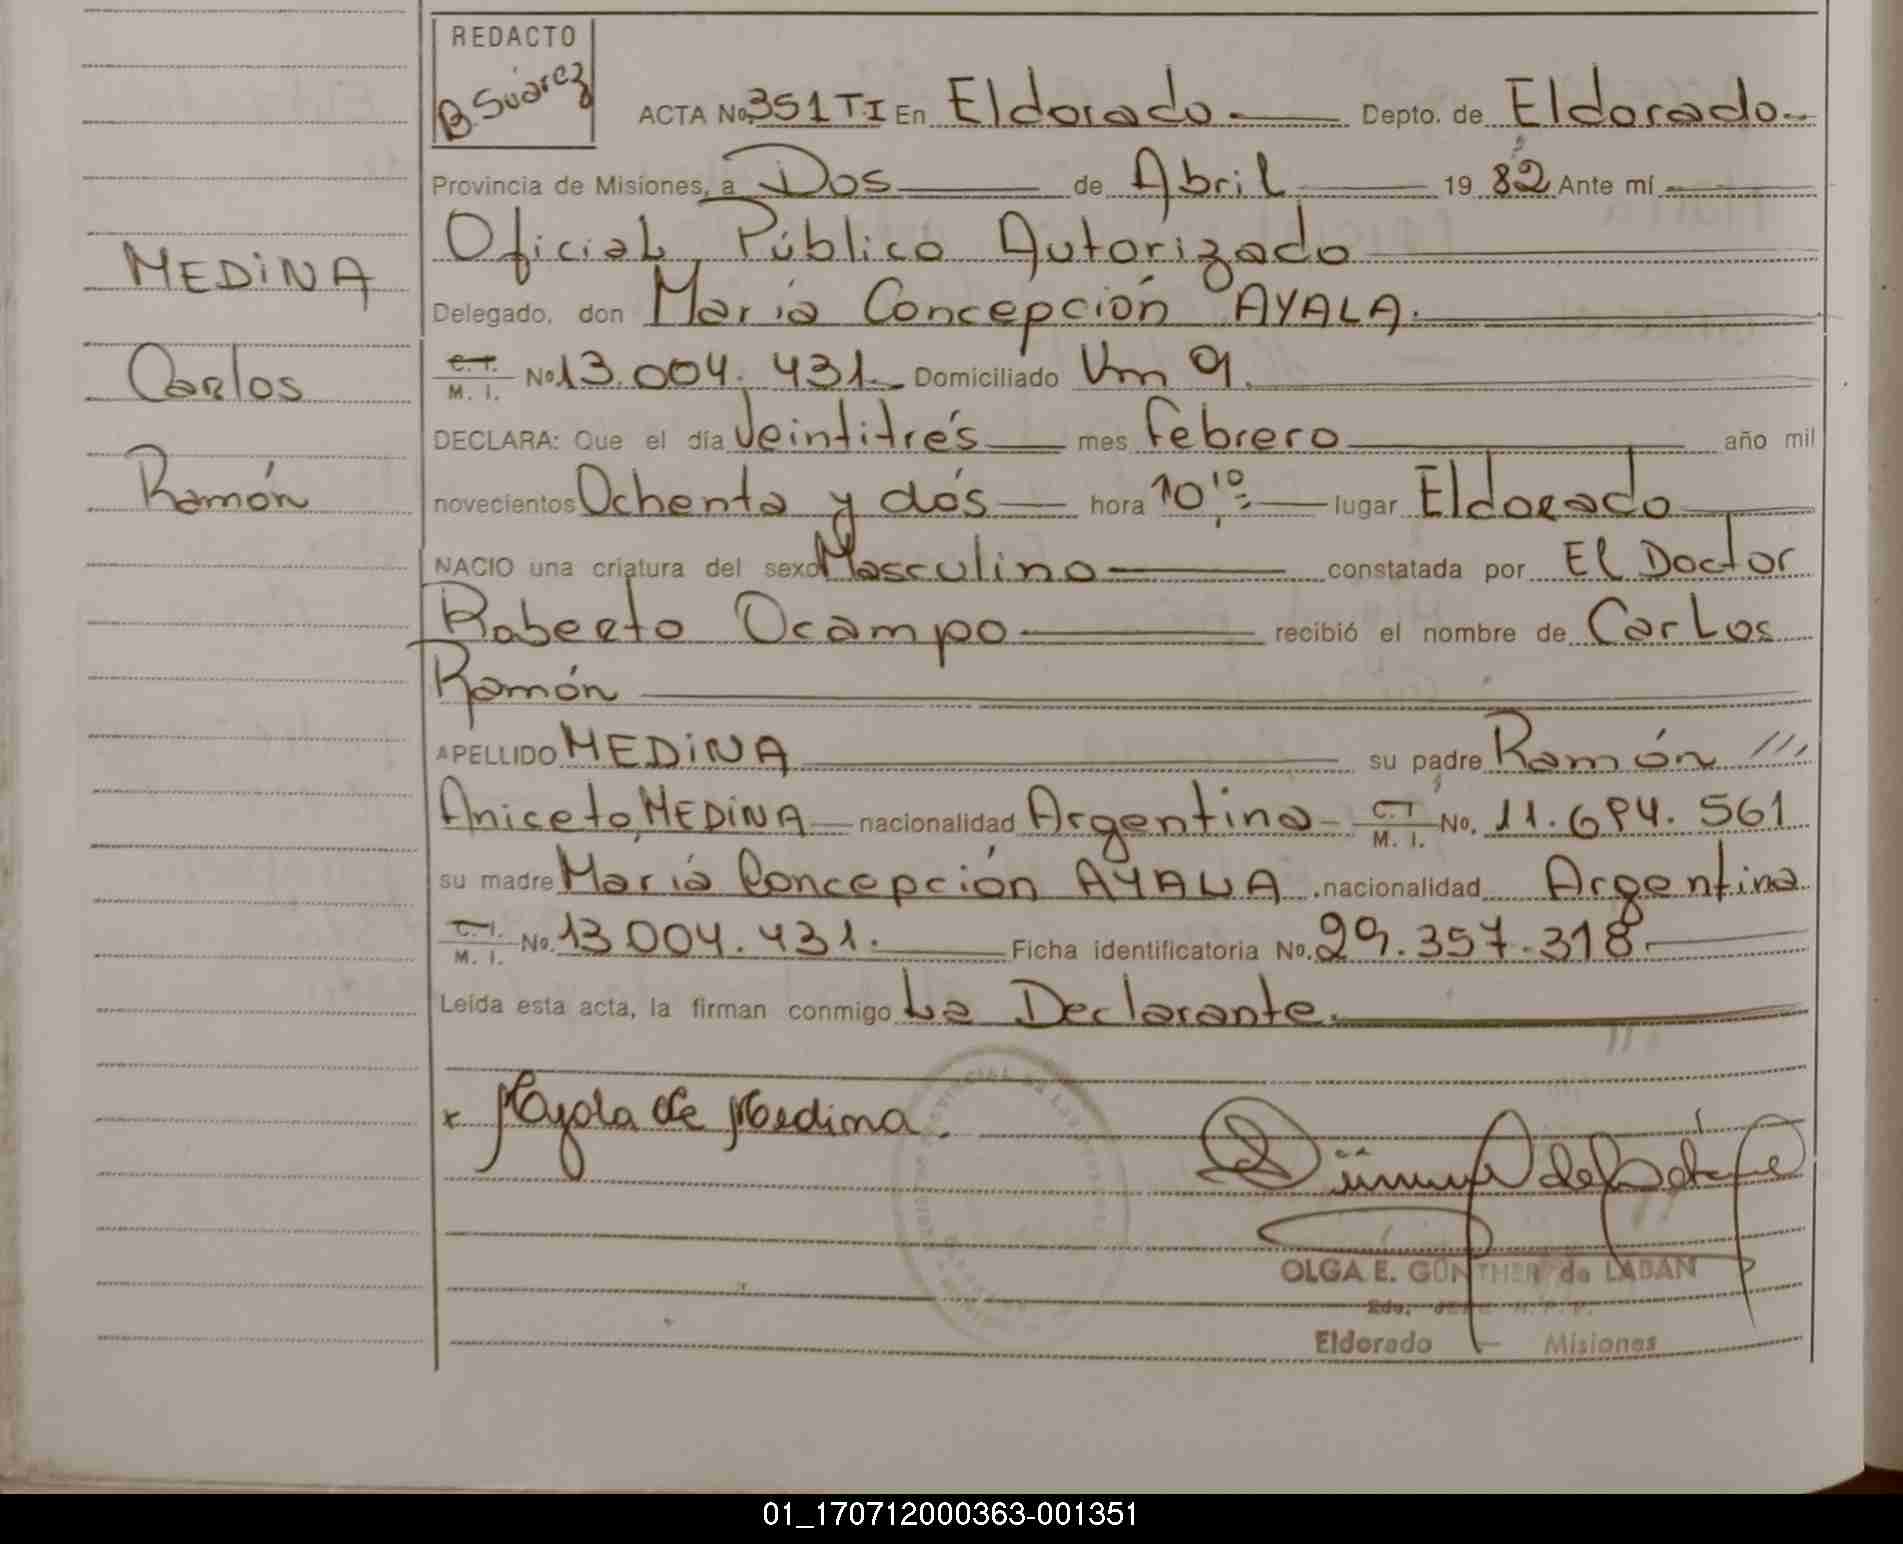 REDACTO
B. Suárez
ACTA No. 351 T.I En Eldorado Depto. de Eldorado
Provincia de Misiones, a Dos de Abril 1982 Ante mí
Oficial Público Autorizado
Delegado, don María Concepción AYALA.
C.I. M. I. No 13.004.431. Domiciliado Km 9.
DECLARA: Que el día Veintitrés mes Febrero año mil
novecientos Ochenta y dós hora 10,10 lugar Eldorado
NACIO una criatura del sexo Masculino constatada por El Doctor
Roberto Ocampo recibió el nombre de Carlos
Ramón
APELLIDO MEDINA su padre Ramón ///
Aniceto MEDINA nacionalidad Argentina C.I M. I. No. 11.694.561
su madre María Concepción AYALA. nacionalidad Argentina
C.I. M. I. No. 13.004.431. Ficha identificatoria No. 29.357.318
Leída esta acta, la firman conmigo La Declarante.
x Ayala de Medina.
OLGA E. GÜNTHER de LADAN
Eldorado - Misiones
MEDINA
Carlos
Ramón
01_170712000363-001351